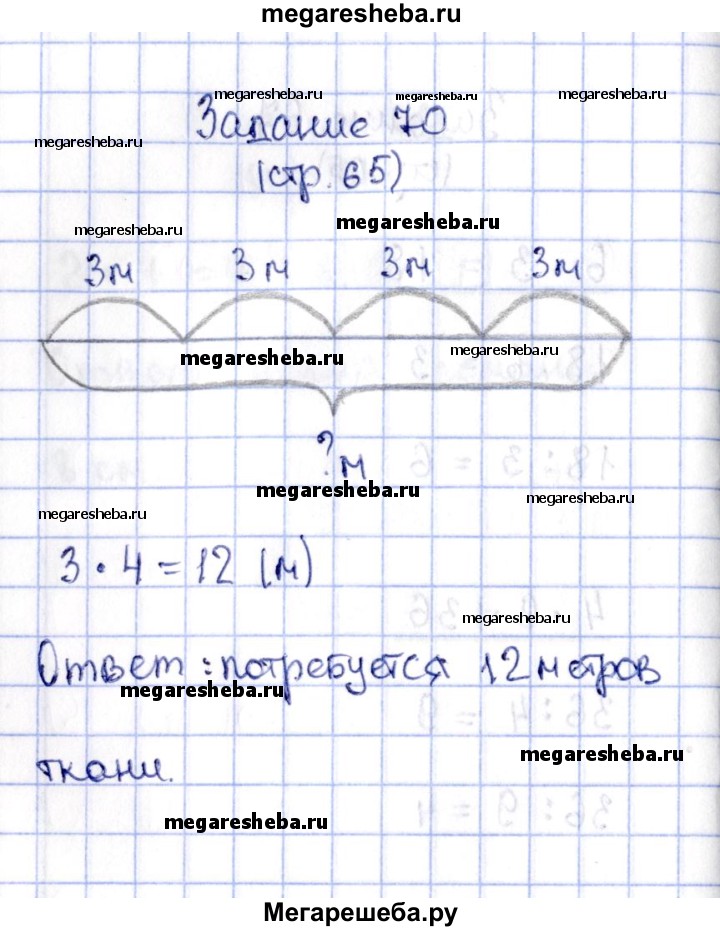 megaresheba.ru
megaresheba.ru megaresheba.ru megaresheba.ru
Задание 70
megaresheba.ru
(стр. 65)
megaresheba.ru
megaresheba.ru
3м 3м 3м 3м
megaresheba.ru megaresheba.ru
?м
megaresheba.ru
megaresheba.ru
megaresheba.ru
3 · 4 = 12 (м)
megaresheba.ru
Ответ: потребуется 12 метров
megaresheba.ru
megaresheba.ru
ткани.
megaresheba.ru
Мегарешеба.ру